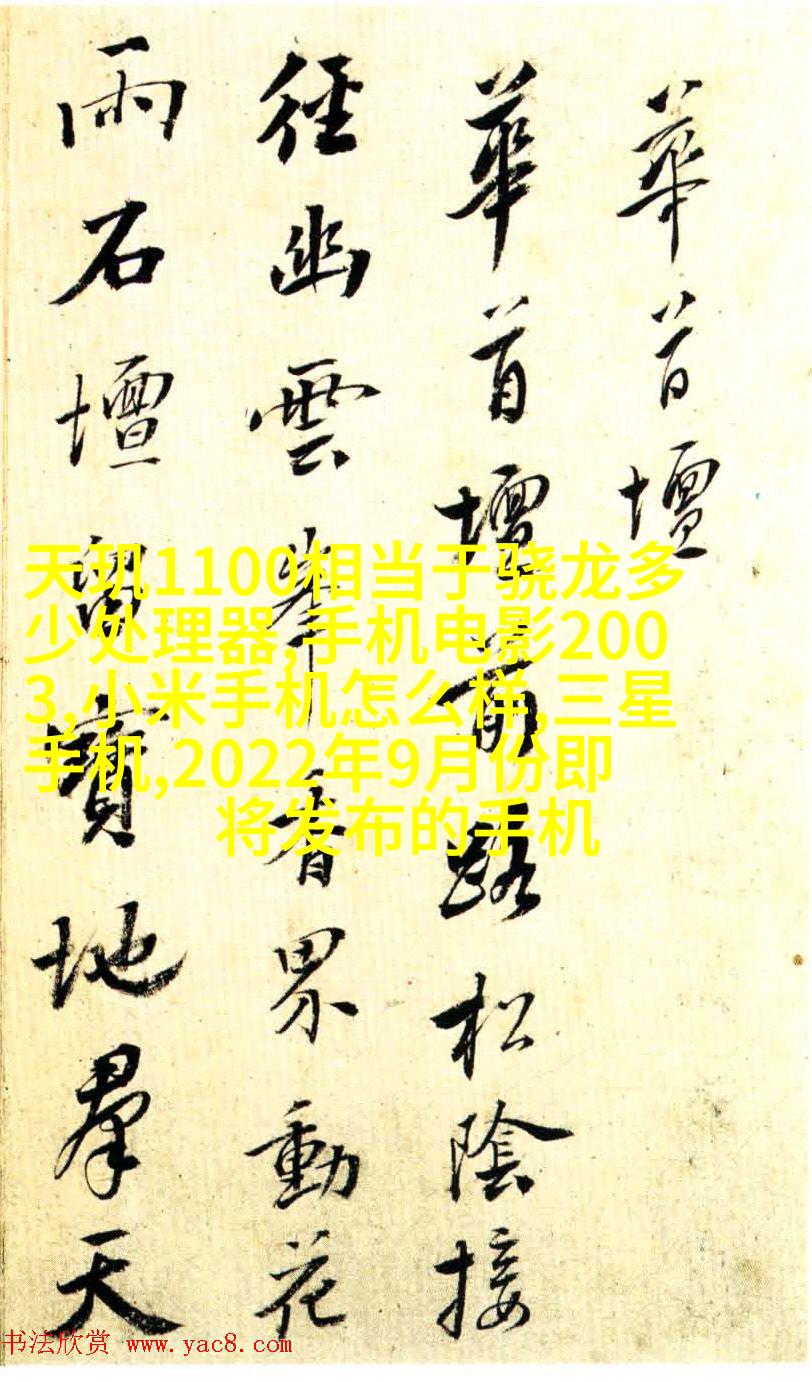 華首壇
華首壇前路松陰接
徑幽雲峯香界動花
雨石壇留寶地羣天
天玑1100相当于骁龙多
少处理器,手机电影200
3,小米手机怎么样,三星
手机,2022年9月份即
将发布的手机
书法欣赏 www.yac8.com